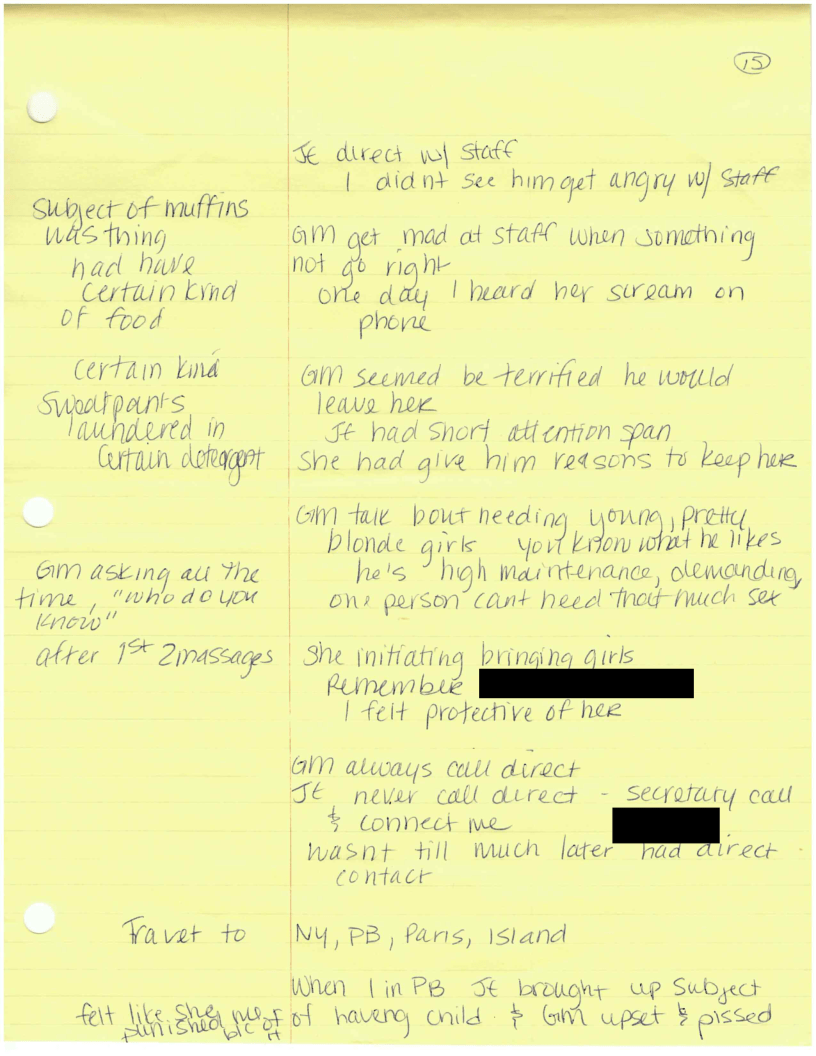 15
JE direct w/ staff
I didnt see him get angry w/ staff
subject of muffins
was thing
had have
certain kind
of food
GM get mad at staff when something
not go right
one day I heard her scream on
phone
certain kind
sweatpants
laundered in
certain detergent
GM seemed be terrified he would
leave her
JE had short attention span
she had give him reasons to keep her
GM talk bout needing young, pretty
blonde girls you know what he likes
he's high maintenance, demanding,
one person cant need that much sex
GM asking all the
time, "who do you
know"
after 1st 2 massages
she initiating bringing girls
Remember
I felt protective of her
GM always call direct
JE never call direct - secretary call
& connect me
wasnt till much later had direct
contact
Travel to
NY, PB, Paris, Island
When I in PB JE brought up subject
of having child & GM upset & pissed
felt like she
punished b/c of
it